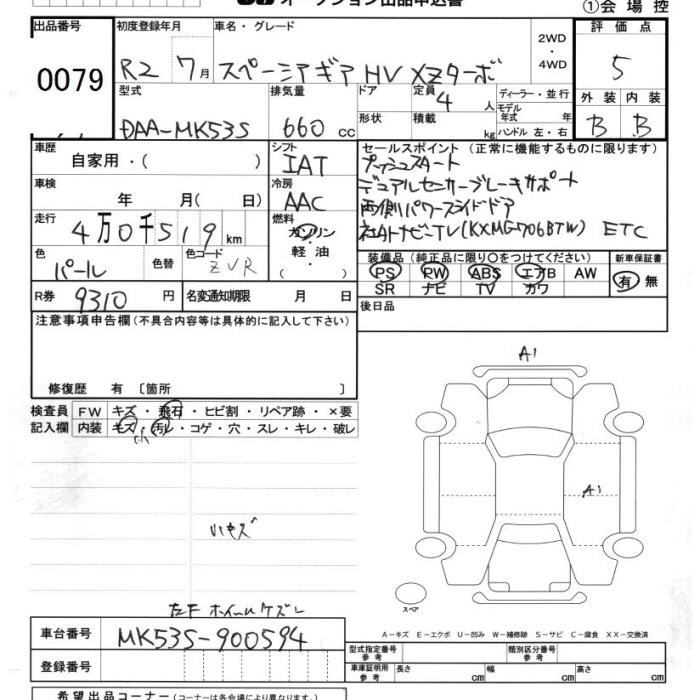 オークション出品申込書 ①会場控
出品番号 初度登録年月 車名・グレード 2WD・4WD 評価点
0079 R2 7月 スペーシアギア HV XZターボ 5
型式 排気量 ドア 定員 4人 ディーラー・並行 外装 内装
DAA-MK53S 660cc 形状 積載 kg モデル年式 年 ハンドル 左・右 B B
車歴 自家用・( ) シフト IAT セールスポイント (正常に機能するものに限ります)
車検 年 月( 日) 冷房 AAC プッシュスタート
デュアルセンサーブレーキサポート
走行 4万0千519km 燃料 ガソリン・軽油・ 両側パワースライドドア
社外ナビTV(KXMG706BTW) ETC
色 パール 色替 色コード ZVR 装備品(純正品に限り○をつけてください) 新車保証書
PS PW ABS エアB AW 有 無
SR ナビ TV カワ
R券 9310円 名変通知期限 月 日 後日品
注意事項申告欄(不具合内容等は具体的に記入して下さい)
修復歴 有 〔箇所 〕
検査員記入欄 FW キズ・飛石・ヒビ割・リペア跡・×要
内装 キズ・汚レ・コゲ・穴・スレ・キレ・破レ
小
A1
A1
小キズ
左F ホイールケズレ
スペア
A-キズ E-エクボ U-凹み W-補修跡 S-サビ C-腐食 XX-交換済
車台番号 MK53S-900594 型式指定番号 参考 類別区分番号 参考
登録番号 車庫証明用 参考 長さ cm 幅 cm 高さ cm
希望出品コーナー(コーナーは各会場により異なります)